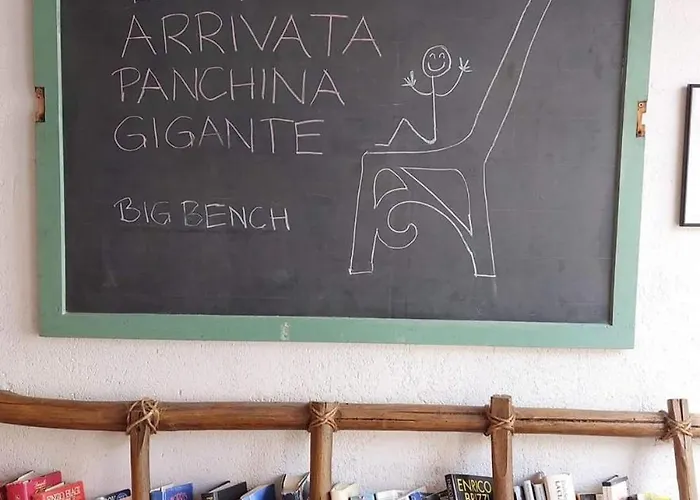 ARRIVATA
PANCHINA
GIGANTE
BIG BENCH
ENRICO
BRIZZI